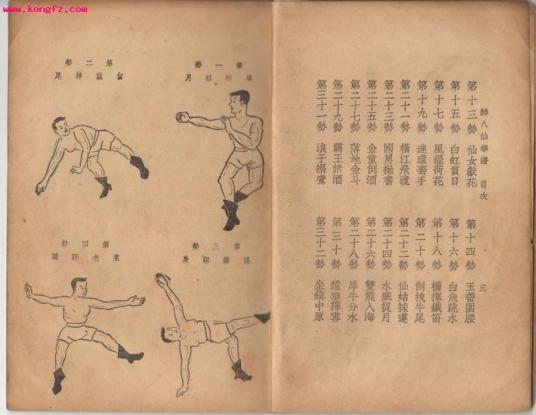 www.kongfz.com
醉八仙拳譜 目次 三
第十三勢 仙女獻花 第十四勢 玉帶圍腰
第十五勢 白虹貫日 第十六勢 白魚跳水
第十七勢 風擺荷花 第十八勢 橫鐵笛
第十九勢 連環套手 第二十勢 倒拽牛尾
第二十一勢 橫江飛渡 第二十二勢 仙姑採蓮
第二十三勢 國舅拋書 第二十四勢 水底捉月
第二十五勢 金童倒酒 第二十六勢 雙龍入海
第二十七勢 落地金斗 第二十八勢 犀牛分水
第二十九勢 霸王酒 第三十勢 鍾離揮雲
第三十一勢 浪子 第三十二勢 坐鎮中原
第一勢
月
第二勢
第三勢
第四勢